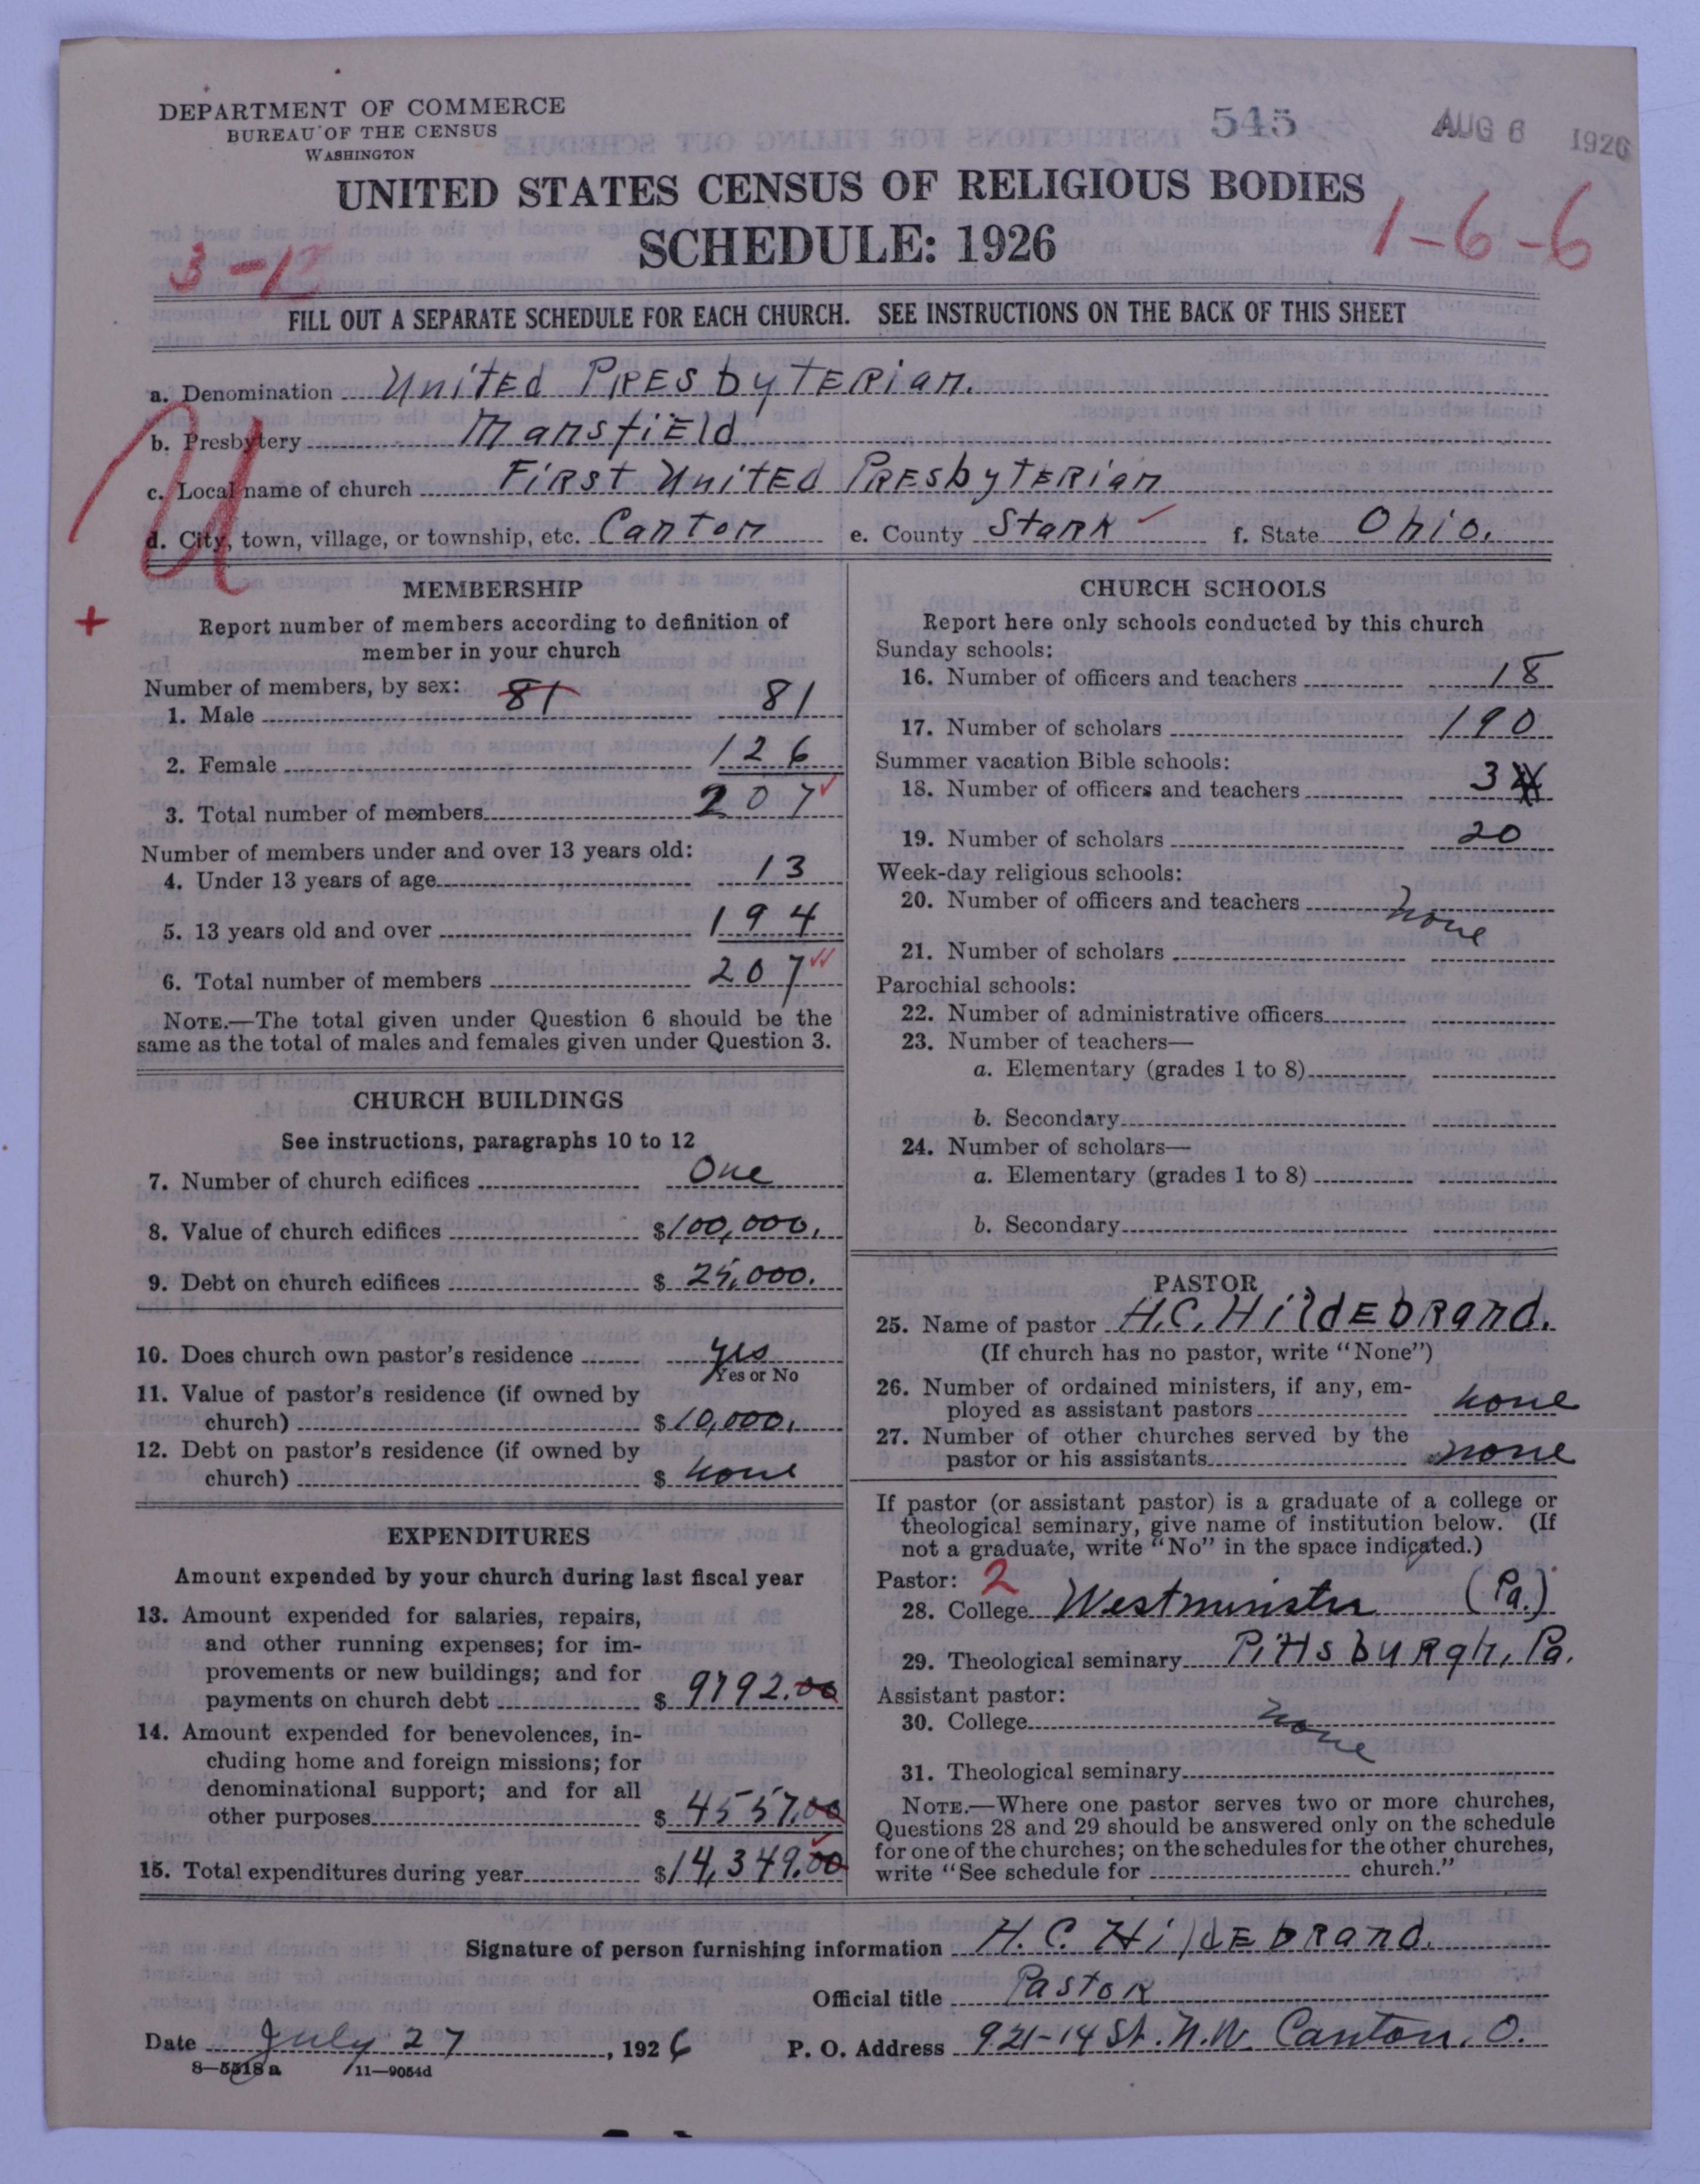 DEPARTMENT OF COMMERCE
BUREAU OF THE CENSUS
WASHINGTON
545
AUG 6 1926
UNITED STATES CENSUS OF RELIGIOUS BODIES
SCHEDULE: 1926
3-12
1-6-6
FILL OUT A SEPARATE SCHEDULE FOR EACH CHURCH. SEE INSTRUCTIONS ON THE BACK OF THIS SHEET
a. Denomination United Presbyterian.
b. Presbytery Mansfield
c. Local name of church First United Presbyterian
d. City, town, village, or township, etc. Canton e. County Stark f. State Ohio.
U
+
MEMBERSHIP
Report number of members according to definition of
member in your church
Number of members, by sex: 81
1. Male 81
2. Female 126
3. Total number of members 207
Number of members under and over 13 years old:
4. Under 13 years of age 13
5. 13 years old and over 194
6. Total number of members 207
NOTE.—The total given under Question 6 should be the
same as the total of males and females given under Question 3.
CHURCH BUILDINGS
See instructions, paragraphs 10 to 12
7. Number of church edifices One
8. Value of church edifices $100,000.
9. Debt on church edifices $ 25,000.
10. Does church own pastor's residence yes
Yes or No
11. Value of pastor's residence (if owned by
church) $10,000.
12. Debt on pastor's residence (if owned by
church) $ none
EXPENDITURES
Amount expended by your church during last fiscal year
13. Amount expended for salaries, repairs,
and other running expenses; for im-
provements or new buildings; and for
payments on church debt $ 9792.00
14. Amount expended for benevolences, in-
cluding home and foreign missions; for
denominational support; and for all
other purposes $ 4557.00
15. Total expenditures during year $14,349.00
CHURCH SCHOOLS
Report here only schools conducted by this church
Sunday schools:
16. Number of officers and teachers 18
17. Number of scholars 190
Summer vacation Bible schools:
18. Number of officers and teachers 3
19. Number of scholars 20
Week-day religious schools:
20. Number of officers and teachers none
21. Number of scholars
Parochial schools:
22. Number of administrative officers
23. Number of teachers—
a. Elementary (grades 1 to 8)
b. Secondary
24. Number of scholars—
a. Elementary (grades 1 to 8)
b. Secondary
PASTOR
25. Name of pastor H.C. Hildebrand.
(If church has no pastor, write "None")
26. Number of ordained ministers, if any, em-
ployed as assistant pastors none
27. Number of other churches served by the
pastor or his assistants none
If pastor (or assistant pastor) is a graduate of a college or
theological seminary, give name of institution below. (If
not a graduate, write "No" in the space indicated.)
Pastor: 2
28. College Westminster (Pa.)
29. Theological seminary Pittsburgh, Pa.
Assistant pastor:
30. College none
31. Theological seminary
NOTE.—Where one pastor serves two or more churches,
Questions 28 and 29 should be answered only on the schedule
for one of the churches; on the schedules for the other churches,
write "See schedule for church."
Signature of person furnishing information H. C. Hildebrand.
Official title Pastor
Date July 27, 1926 P. O. Address 921-14 St. N.W. Canton, O.
8—5518a 11—9054d